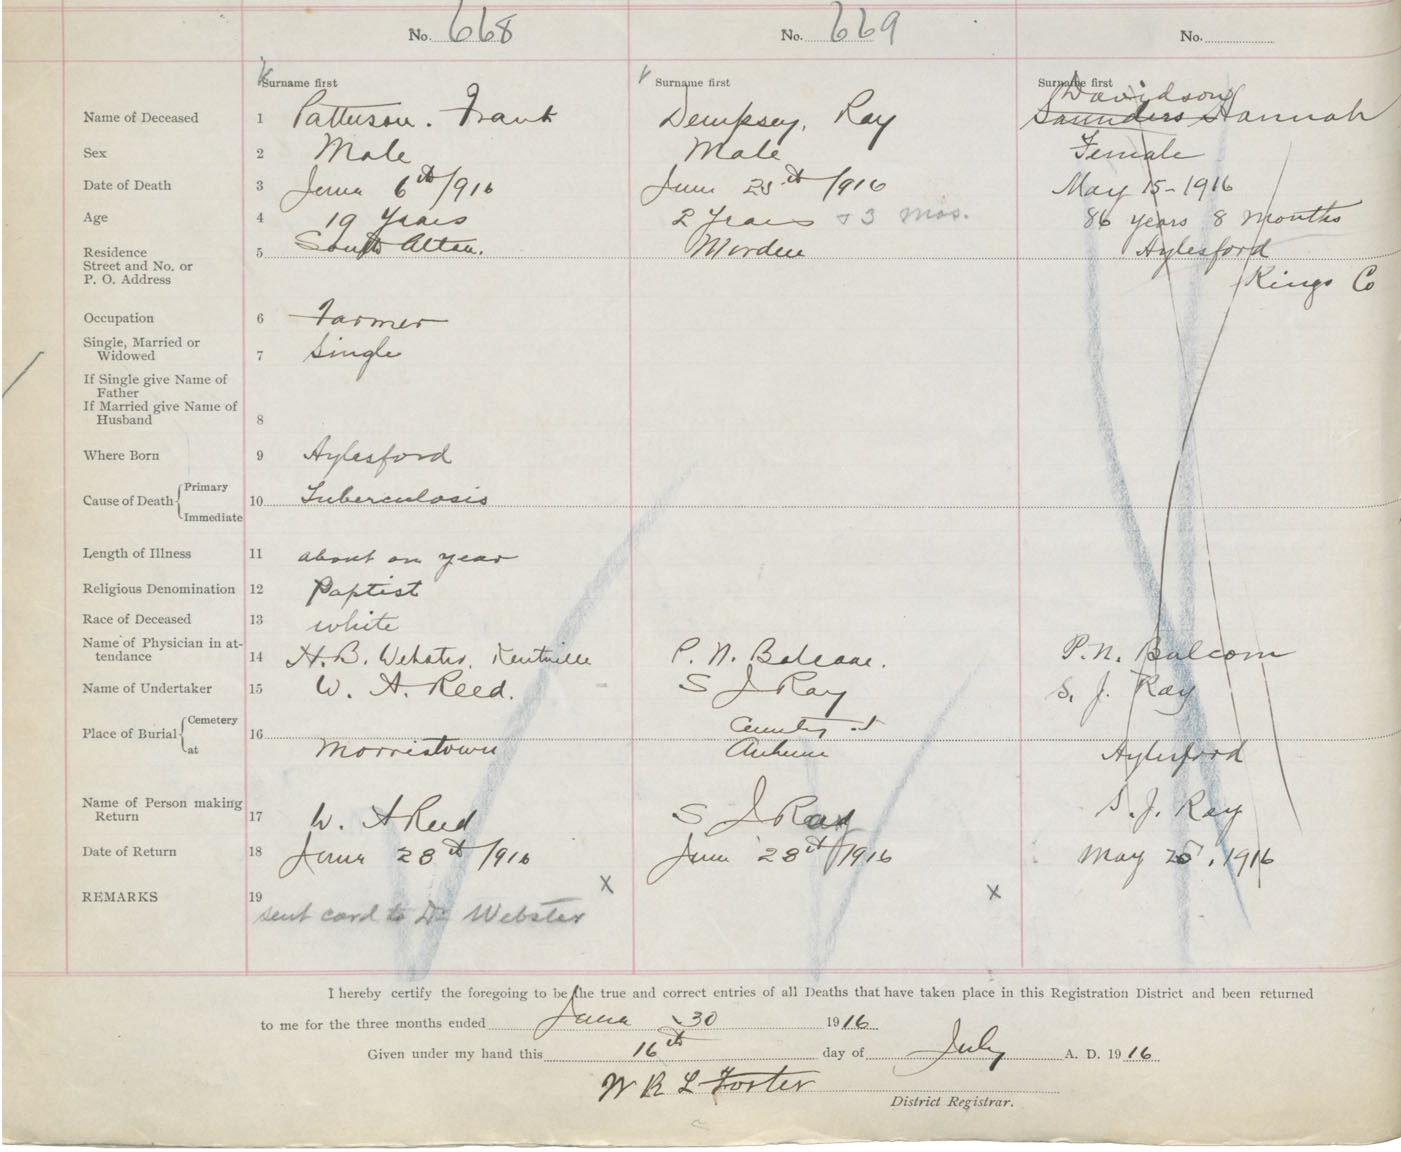 No. 668 No. 669 No.
Surname first Surname first Surname first
Davidson
Name of Deceased 1 Patterson. Frank Dempsey, Ray Saunders Hannah
Sex 2 Male Male Female
Date of Death 3 June 6th/1916 June 25th/1916 May 15-1916
Age 4 19 years 2 years + 3 mos. 86 years 8 months
Residence 5 South Alton. Morden Aylesford
Street and No. or
P. O. Address Kings Co
Occupation 6 Farmer
Single, Married or
Widowed 7 Single
If Single give Name of
Father
If Married give Name of
Husband 8
Where Born 9 Aylesford
Primary
Cause of Death 10 Tuberculosis
Immediate
Length of Illness 11 about on year
Religious Denomination 12 Baptist
Race of Deceased 13 white
Name of Physician in at-
tendance 14 H. B. Webster, Kentville P. N. Balcom. P. N. Balcom
Name of Undertaker 15 W. A. Reed. S J Ray S. J. Ray
Cemetery
Place of Burial 16 Cemetery at
at Morristown Auburn Aylesford
Name of Person making
Return 17 W. A Reed S J Ray S. J. Ray
Date of Return 18 June 28th/1916 June 28th/1916 May 25, 1916
REMARKS 19 x x
sent card to Dr Webster
I hereby certify the foregoing to be the true and correct entries of all Deaths that have taken place in this Registration District and been returned
to me for the three months ended June 30 1916
Given under my hand this 16th day of July A. D. 1916
W R L Foster
District Registrar.